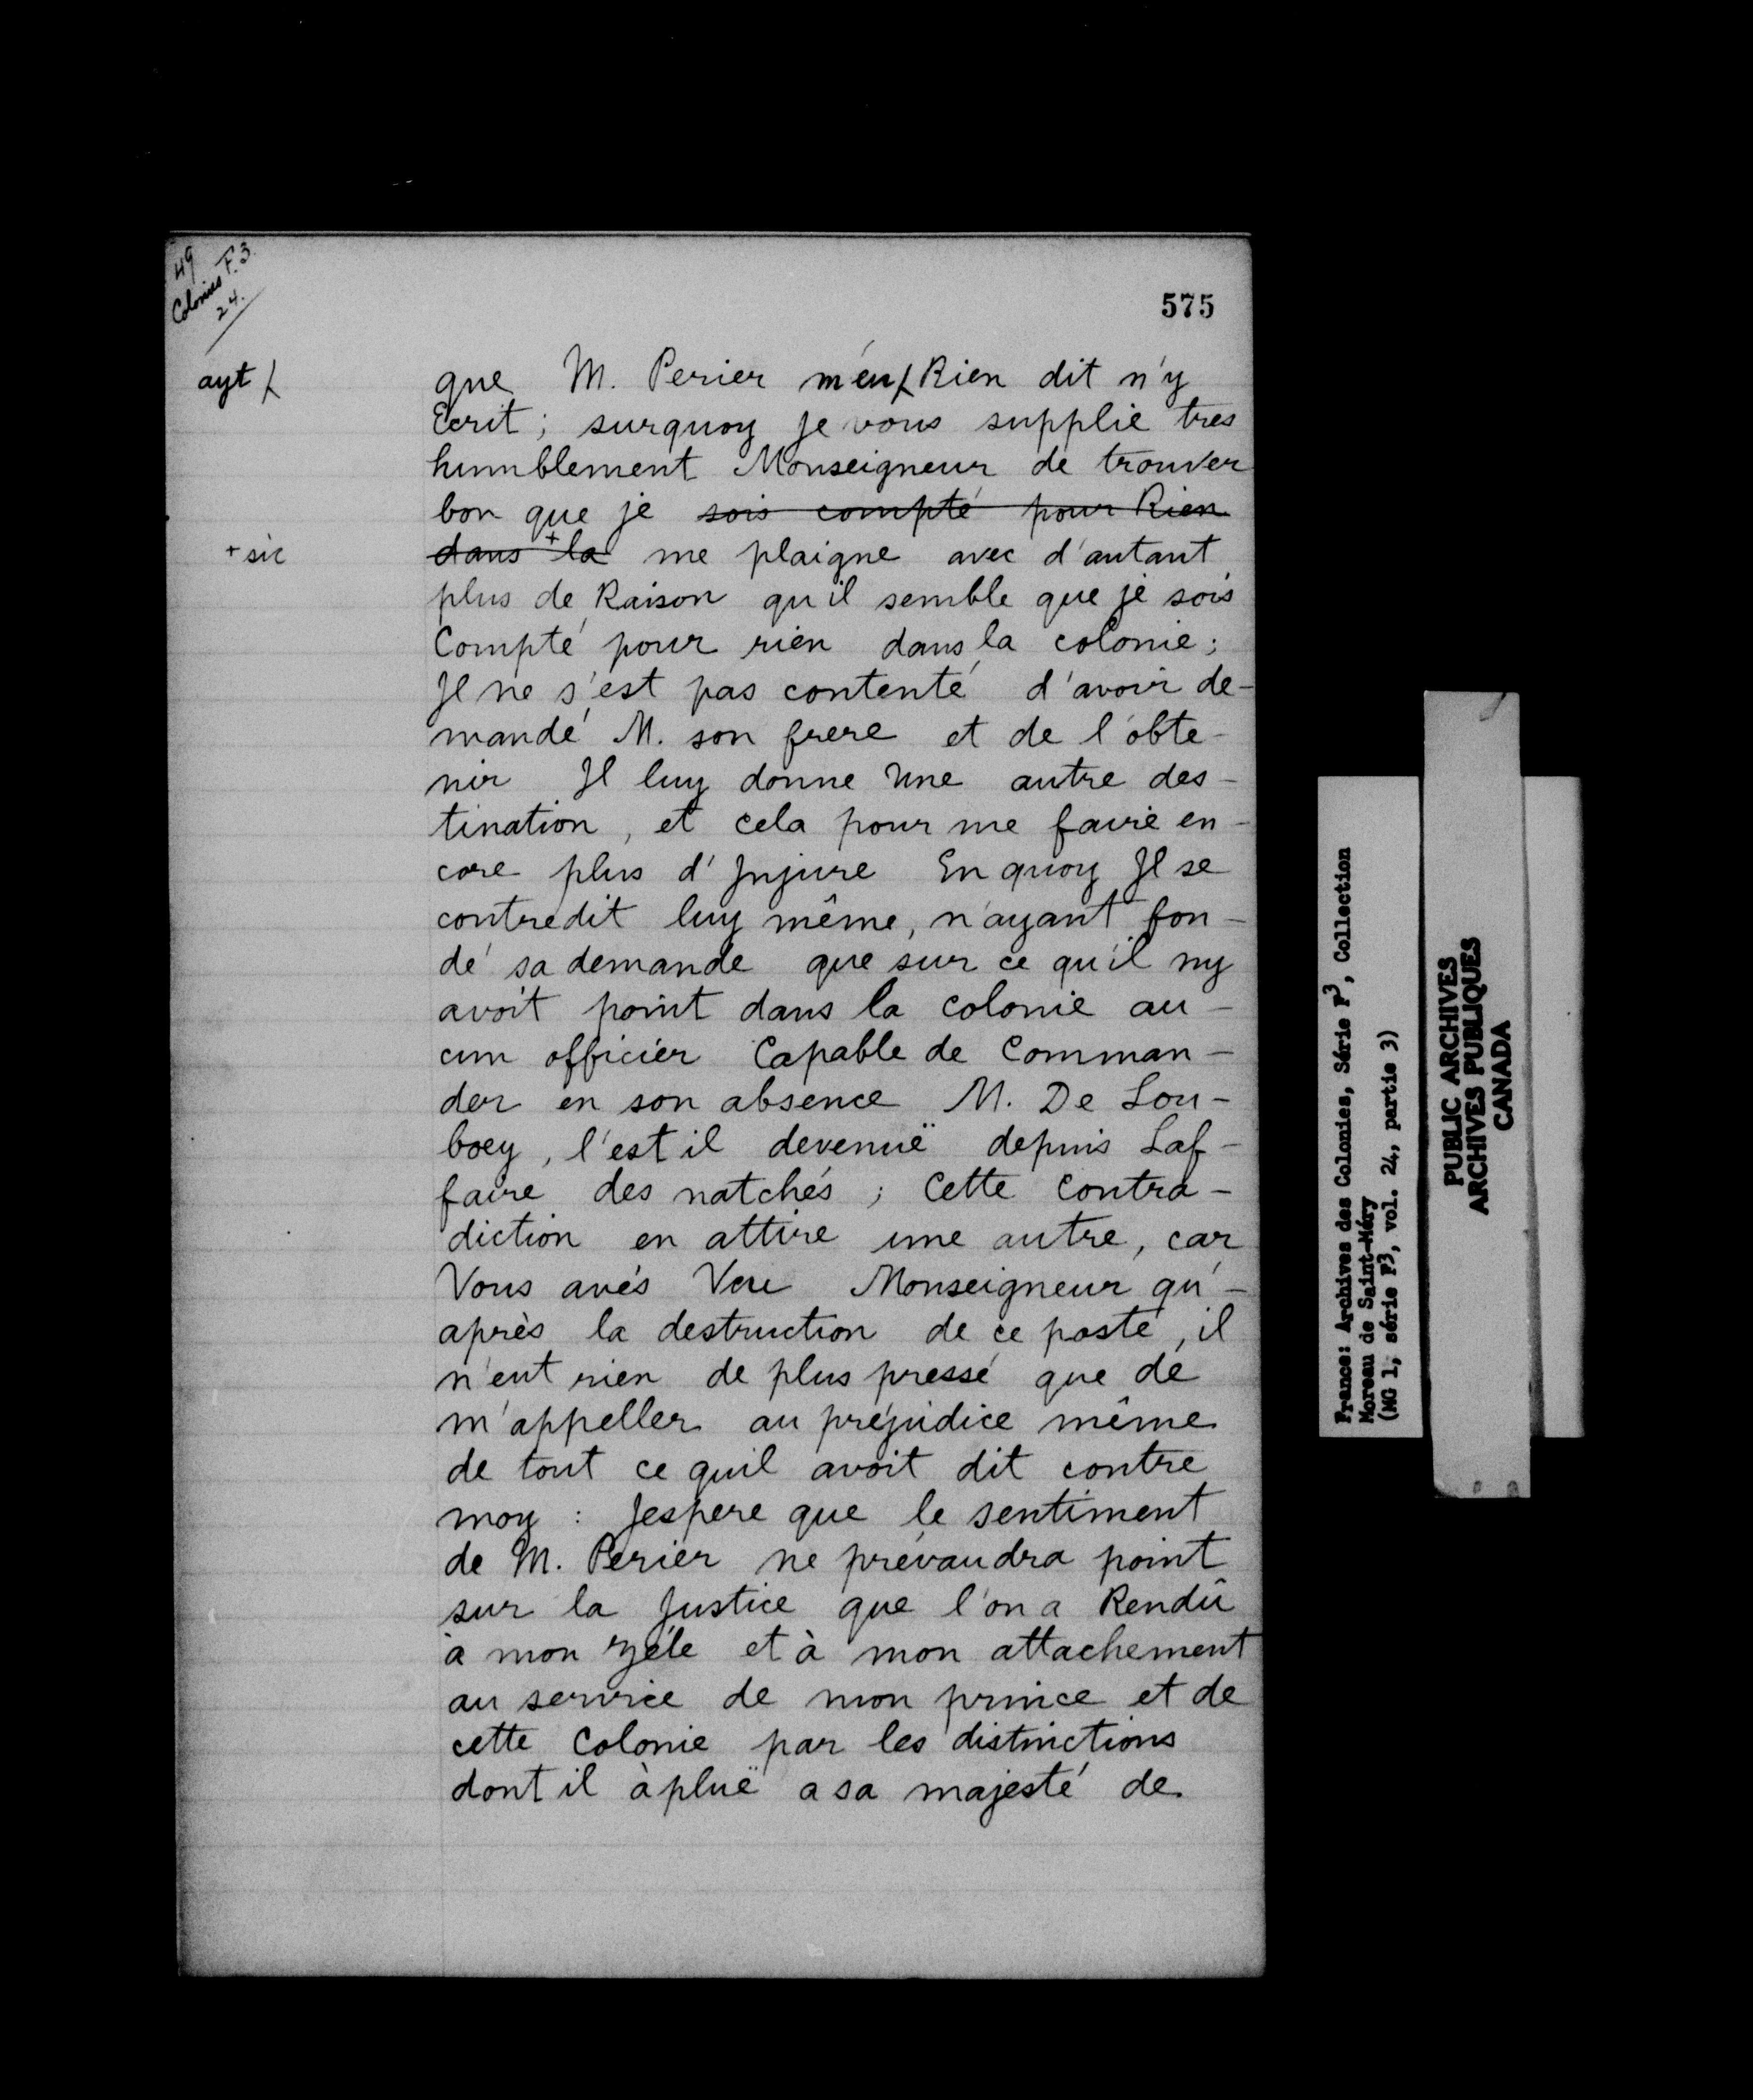 49
Colonies F.3.
24.
575
ayt /
que M. Perier m'en / Rien dit n'y
Ecrit ; surquoy je vous supplie tres
humblement Monseigneur de trouver
bon que je sois compté pour Rien
+ sic
dans + la me plaigne avec d'autant
plus de Raison qu'il semble que je sois
Compté pour rien dans la colonie ;
Il ne s'est pas contenté d'avoir de-
mandé M. son frere et de l'obte-
nir Il luy donne Une autre des-
tination, et cela pour me faire en-
core plus d'Injure En quoy Il se
contredit luy même, n'ayant fon-
dé sa demande que sur ce qu'il ny
avoit point dans la colonie au-
cun officier Capable de Comman-
der en son absence M. De Lou-
boey, l'est il devenuë depuis Laf-
faire des natchés ; Cette Contra-
diction en attire une autre, car
Vous avés Veu Monseigneur qu'-
après la destruction de ce poste, il
n'eut rien de plus pressé que de
m'appeller au préjudice même
de tout ce quil avoit dit contre
moy : Jespere que le sentiment
de M. Perier ne prévaudra point
sur la Justice que l'on a Rendû
à mon zéle et à mon attachement
au service de mon prince et de
cette Colonie par les distinctions
dont il à pluë a sa majesté de
France: Archives des Colonies, Série F3, Collection
Moreau de Saint-Méry
(MG 1, série F3, vol. 24, partie 3)
PUBLIC ARCHIVES
ARCHIVES PUBLIQUES
CANADA